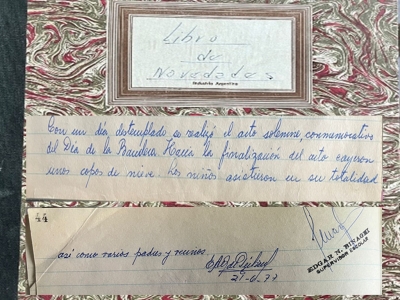 Libro
de
Novedades
Industria Argentina
Con un día destemplado se realizó el acto solemne, conmemorativo
del Día de la Bandera. Hacia la finalización del acto cayeron
unos copos de nieve. Los niños asistieron en su totalidad
44
así como varios padres y vecinos.
21-6-77
EDGAR N.
SUPERVISOR ESCOLAR